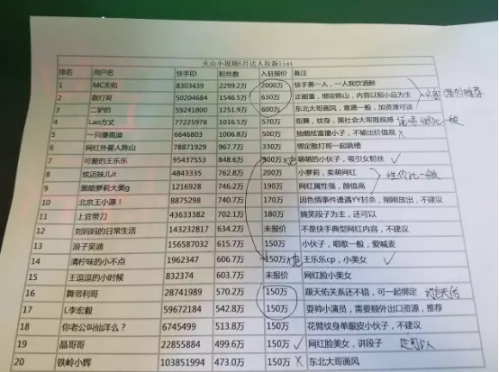 火山小视频6月达人拉新list
排名 用户名 快手ID 粉丝数 入驻报价
1 MC天佑 8303439 2299.2万 2000万 快手第一人，一人我饮酒醉
2 散打哥 50204684 1546.5万 630万 正能量，绑定陈山，内容以短小品为主
3 二驴的 59241800 1251.9万 600万 东北大哥画风，意愿一般，加资源可谈
4 Lao方丈 77225978 1016.5万 570万 街舞，纹身，黑社会大哥既视感
5 一只傻高迪 6646803 1006.8万 500万 抽烟炫富傻小子，不输出价值观
6 网红外星人陈山 78871929 967.7万 330万 跟散打哥一起跳槽
7 可爱的王乐乐 95437553 848.6万 500万 萌萌的小伙子，吸引女粉丝
8 炫迈妹儿t 4843335 762.8万 200万 小萝莉，卖萌网红
9 黑暗萝莉大美g 1216928 746.2万 190万 网红属性强，颜值高
10 北京王小源！ 8875298 740.7万 170万 因色情事件遭遇YY封杀，刚刚放出，不建议
11 上官带刀 43633382 702.1万 180万 搞笑段子为主，还可以
12 刘妈妈的日常生活 143232817 634.2万 未报价 不是快手典型网红内容，不建议
13 浪子吴迪 156587032 615.7万 150万 小伙子，唱歌一般，爱喊麦
14 清柠味的小不点 1962347 606.7万 150万 王乐乐cp，小美女
15 王逗逗的小时候 832374 603.7万 未报价 网红脸小美女
16 舞帝利哥 28741989 570.2万 150万 跟天佑关系还不错，可一起绑定
17 L李宏毅 59677160 542.8万 150万 耍帅小演员，需要额外出口资源，推荐
18 你老公叫仙洋么？ 6745499 513.8万 150万 花臂纹身单眼皮小伙子，不建议
19 晶哥哥 22855884 499.6万 150万 网红脸美女，讲段子
20 铁岭小辉 103851994 473.0万 150万 东北大哥画风